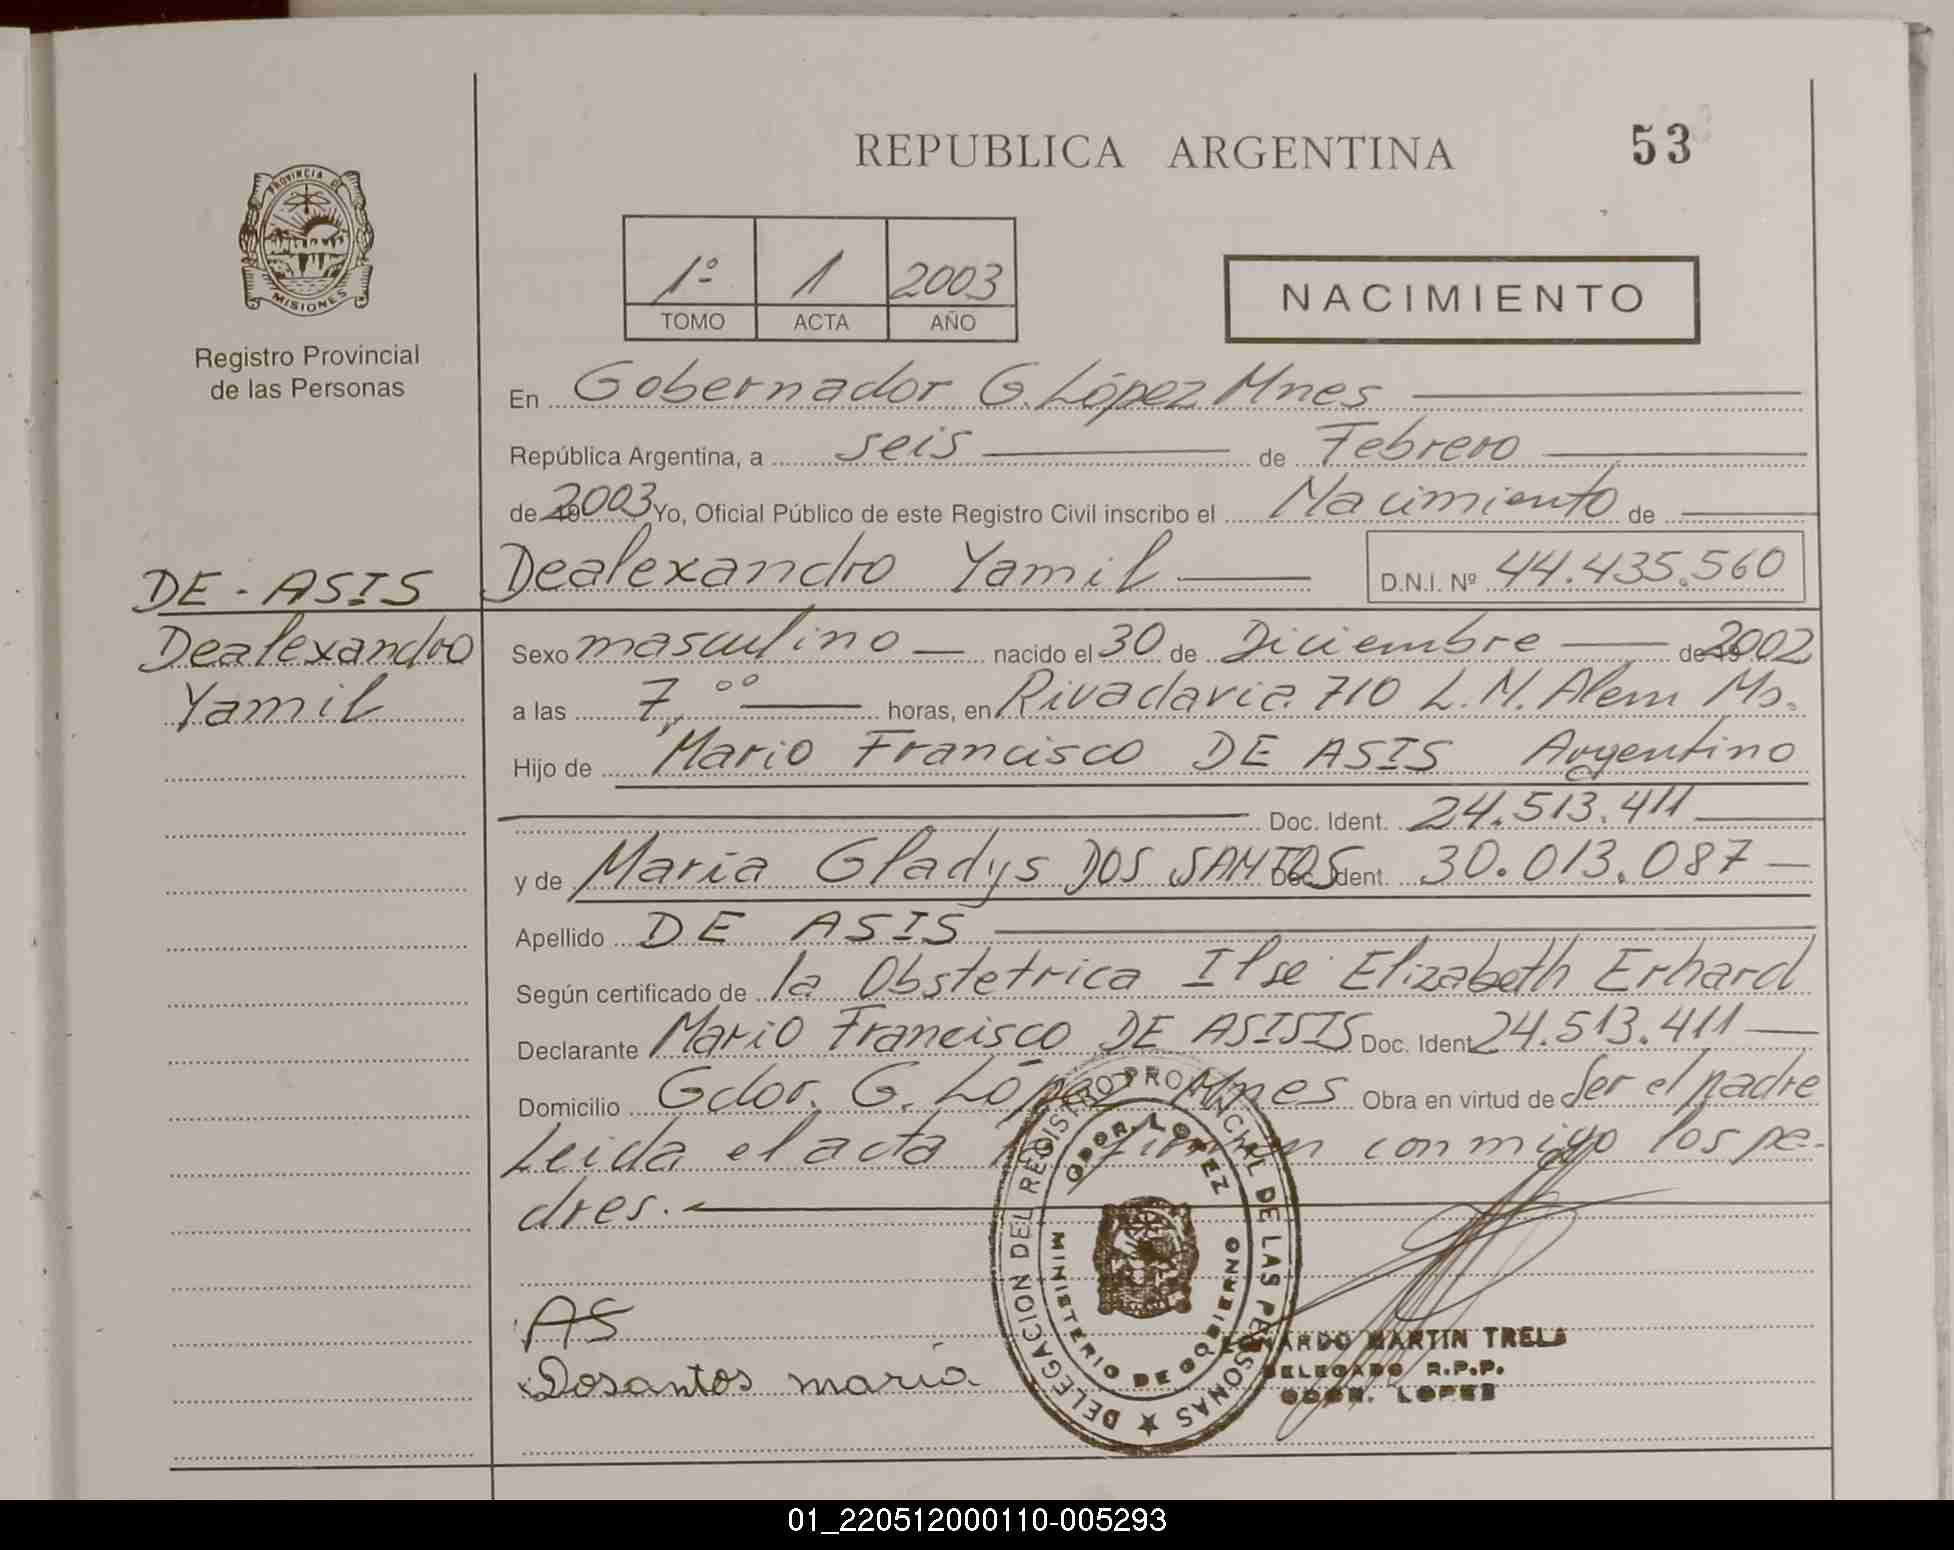 REPUBLICA ARGENTINA
53
PROVINCIA DE
MISIONES
Registro Provincial
de las Personas
1º 1 2003
TOMO ACTA AÑO
NACIMIENTO
En Gobernador G. López Mnes
República Argentina, a seis de Febrero
de 2003 Yo, Oficial Público de este Registro Civil inscribo el Nacimiento de
Dealexandro Yamil D.N.I. Nº 44.435.560
DE-ASIS
Dealexandro
Yamil
Sexo masculino nacido el 30 de Diciembre de 2002
a las 7,ºº horas, en Rivadavia 710 L.N. Alem Ms.
Hijo de Mario Francisco DE ASIS Argentino
Doc. Ident. 24.513.411
y de Maria Gladys DOS SANTOS Doc. Ident. 30.013.087
Apellido DE ASIS
Según certificado de la Obstetrica Ilse Elizabeth Erhard
Declarante Mario Francisco DE ASISIS Doc. Ident 24.513.411
Domicilio Gdor. G. López Mnes Obra en virtud de Ser el padre
Leida el acta firman conmigo los pa-
dres.
AS
Dosantos maria
DELEGACION DEL REGISTRO PROVINCIAL DE LAS PERSONAS
GDOR. LOPEZ
MINISTERIO DE GOBIERNO
LEONARDO MARTIN TRELA
DELEGADO R.P.P.
GDOR. LOPEZ
01_220512000110-005293